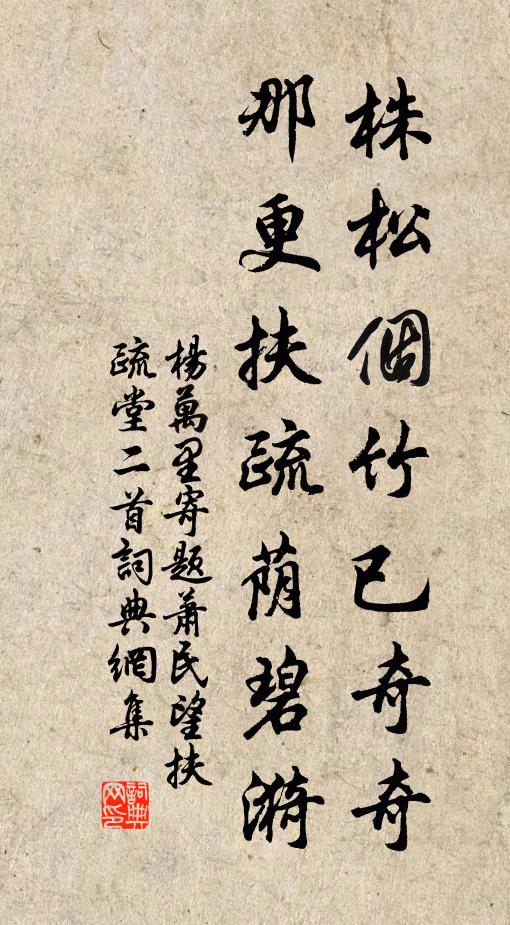 株松個竹已奇奇
那更扶疏荫碧漪
楊萬里寄题蕭民望扶
疏堂二首詞典網集
詞典网印